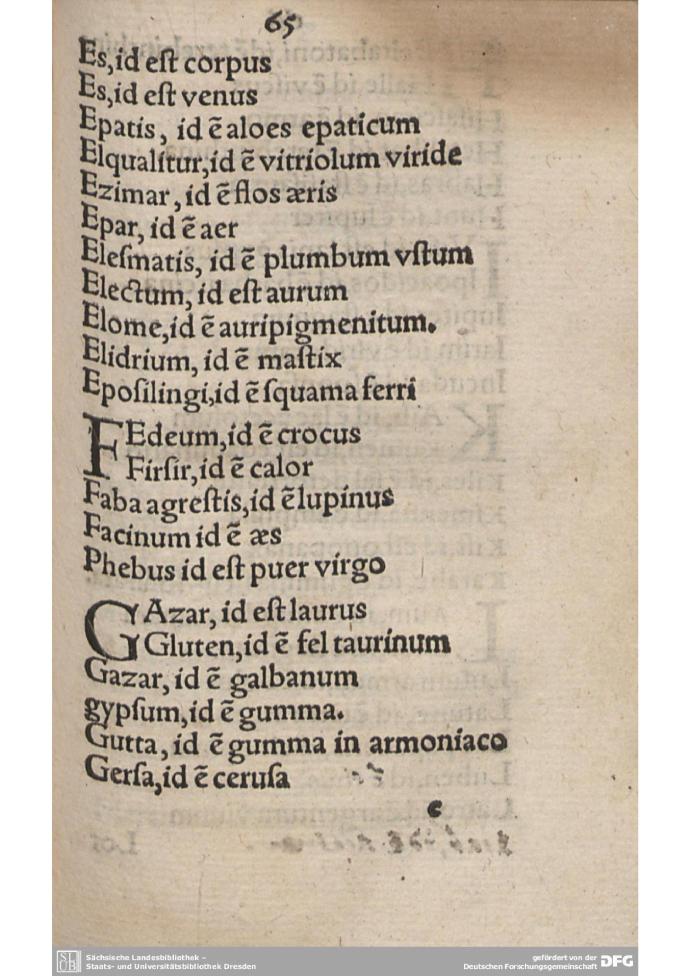 65
Es, id eſt corpus
Es, id eſt venus
Epatis, id ē aloes epaticum
Elqualitur, id ē vitriolum viride
Ezimar, id ē flos æris
Epar, id ē aer
Eleſmatis, id ē plumbum vſtum
Electum, id eſt aurum
Elome, id ē auripigmenitum.
Elidrium, id ē maſtix
Epoſilingi, id ē ſquama ferri
FEdeum, id ē crocus
Firſir, id ē calor
Faba agreſtis, id ē lupinus
Facinum id ē æs
Phebus id eſt puer virgo
GAzar, id eſt laurus
Gluten, id ē fel taurinum
Gazar, id ē galbanum
gypſum, id ē gumma.
Gutta, id ē gumma in armoniaco
Gerſa, id ē ceruſa
Sächsische Landesbibliothek –
Staats- und Universitätsbibliothek Dresden
gefördert von der
Deutschen Forschungsgemeinschaft DFG